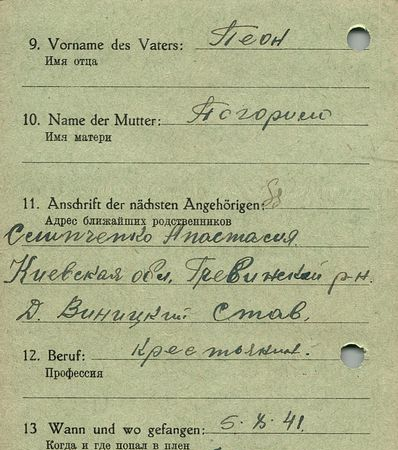 9. Vorname des Vaters: Леон
Имя отца
10. Name der Mutter:
Имя матери
11. Anschrift der nächsten Angehörigen:
Адрес ближайших родственников
Анастасия
Киевская обл. р-н.
Д. Виницкий Став.
12. Beruf: крестьянин.
Профессия
13 Wann und wo gefangen: 5.X.41.
Когда и где попал в плен